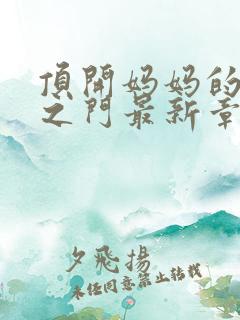 頂開妈妈的
之门最新章
夕飛揚
未经同意禁止转载